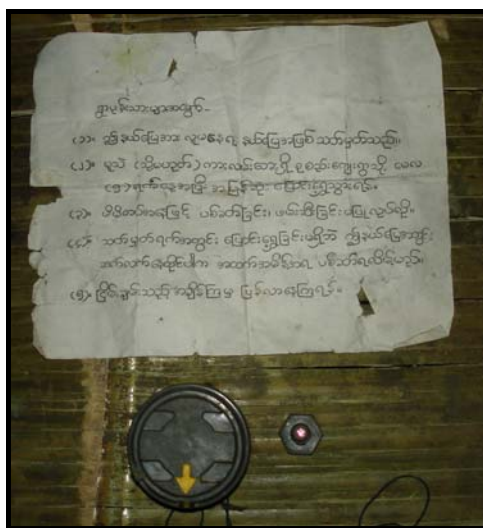 ရွာမှန်းသားများအတွက်-
(၁)။ ဤနယ်မြေအား လူမနေရ နယ်မြေအဖြစ် သတ်မှတ်သည်။
(၂)။ မူသဲ (သို့မဟုတ်) ကားလမ်းဘေးရှိ စုစည်းကျေးရွာသို့
(၅)ရက်နေ့အပြီး အမြန်ဆုံး ပြောင်းရွှေ့သွားရန်။
(၃)။ ပစ်ခတ်ခြင်း၊ ဖမ်းဆီးခြင်း ပြုလုပ်မည်။
(၄)။ သတ်မှတ်ရက်အတွင်း ပြောင်းရွှေ့ခြင်းမရှိဘဲ ဤနယ်မြေအတွင်း
ဆက်လက်နေထိုင်ပါက အထက်အမိန့်အရ ပစ်ခတ်ရလိမ့်မည်။
(၅)။ ငြိမ်းချမ်းသည့် အချိန်ကြမှ ပြန်လာနေကြရန်။